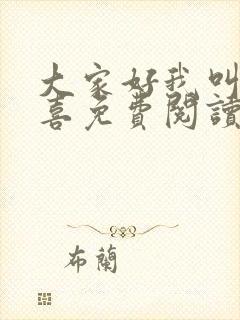 大家好我叫
喜免費閱讀
布蘭